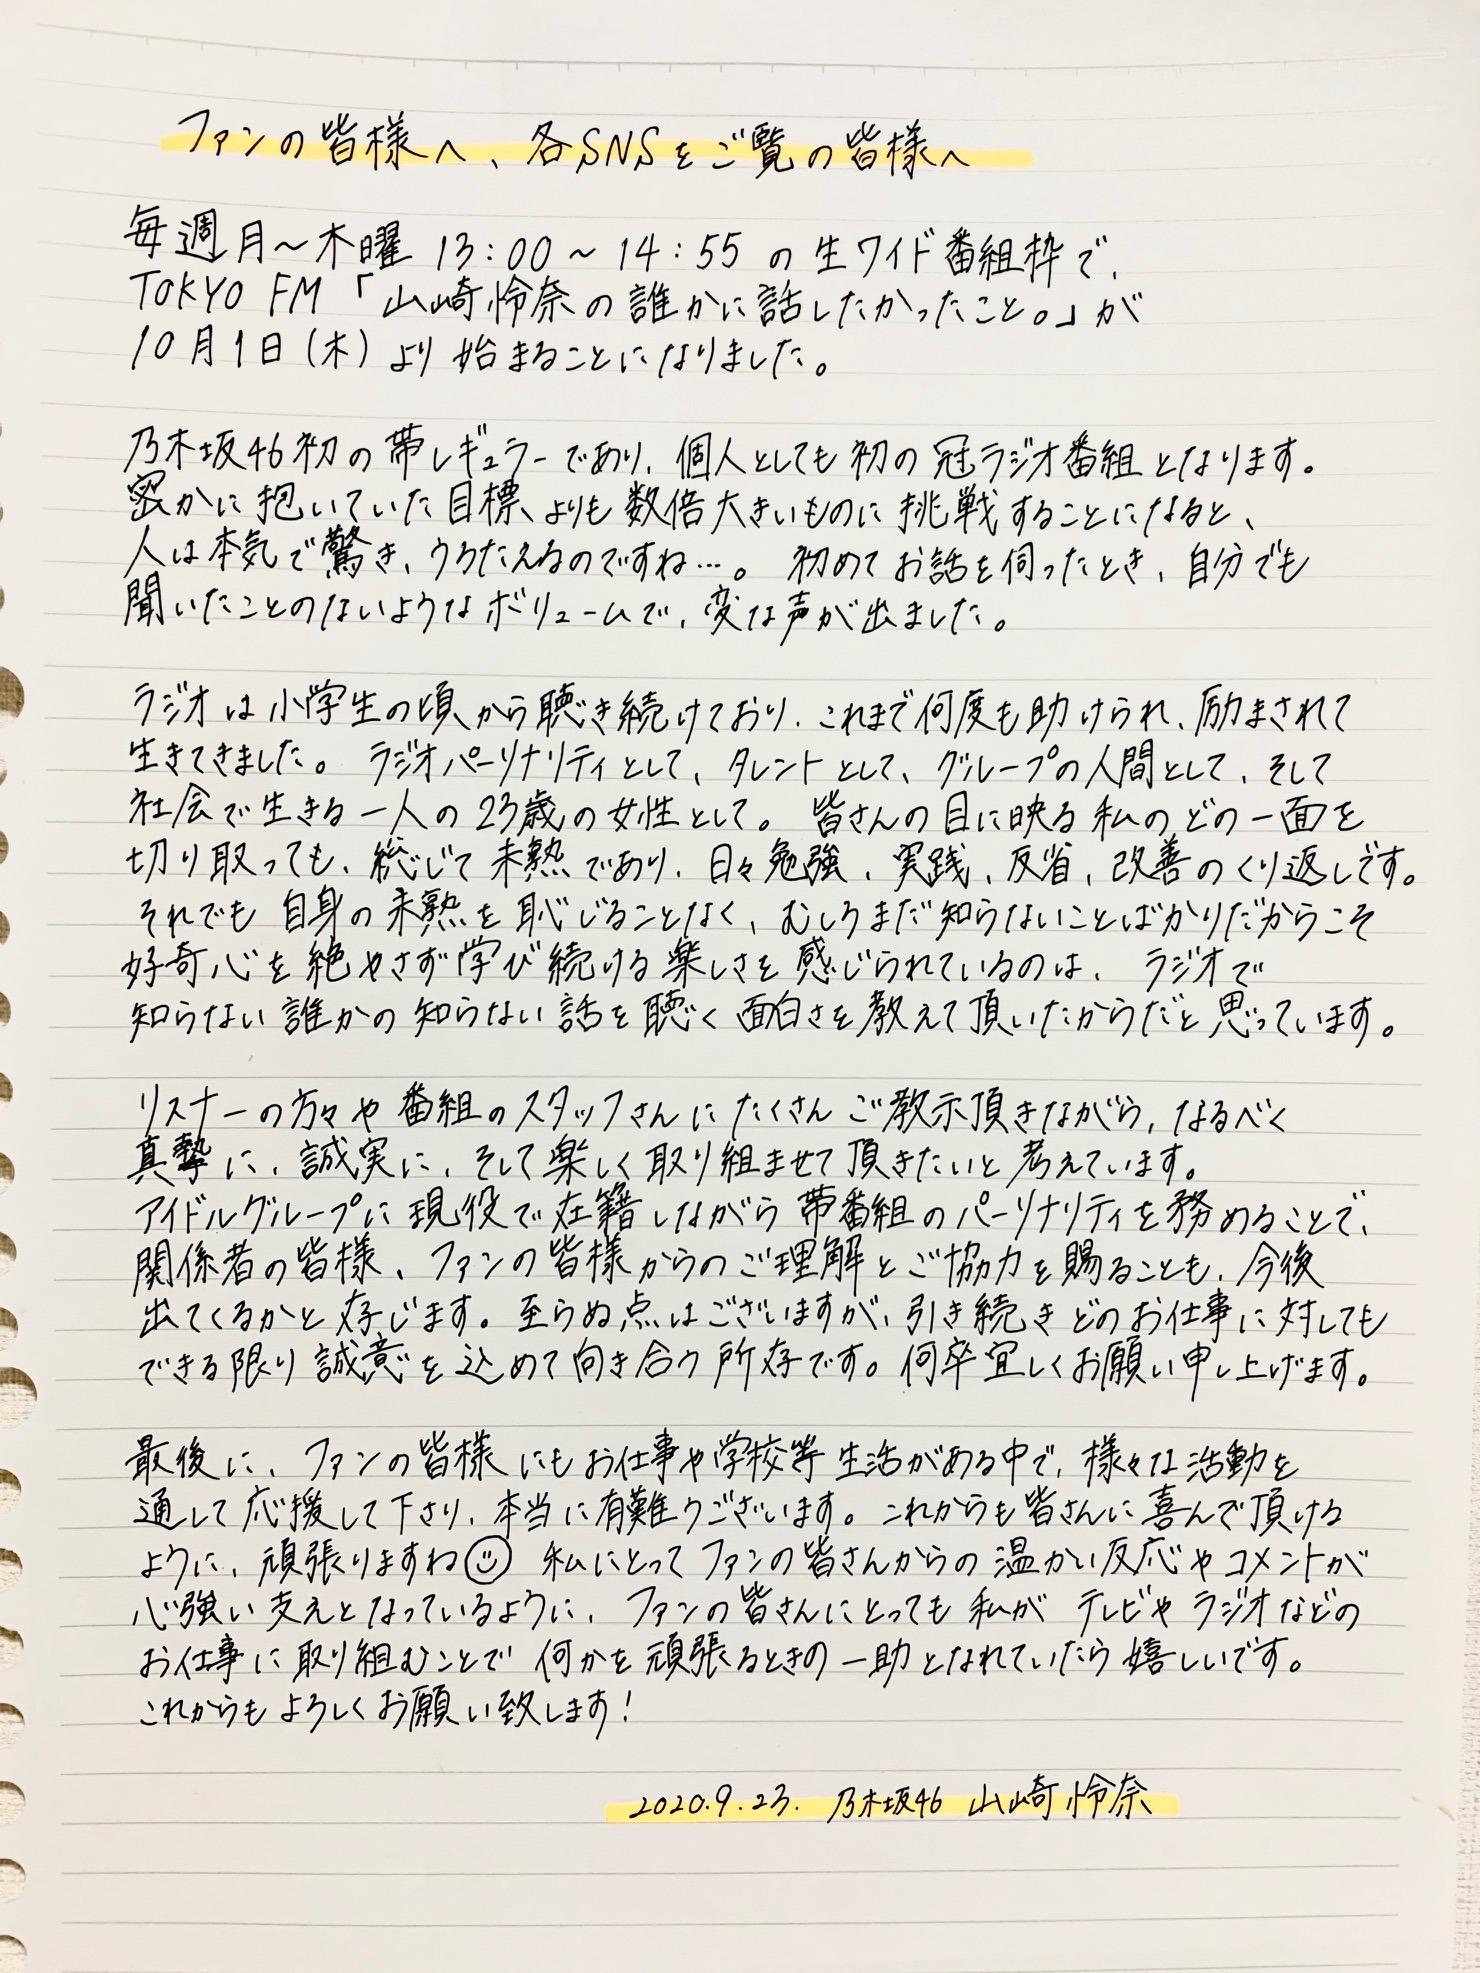 ファンの皆様へ、各SNSをご覧の皆様へ
毎週月〜木曜 13:00〜14:55の生ワイド番組枠で、
TOKYO FM「山崎怜奈の誰かに話したかったこと。」が
10月1日(木)より始まることになりました。
乃木坂46初の帯レギュラーであり、個人としても初の冠ラジオ番組となります。
密かに抱いていた目標よりも数倍大きいものに挑戦することになると、
人は本気で驚き、うろたえるのですね…。初めてお話を伺ったとき、自分でも
聞いたことのないようなボリュームで、変な声が出ました。
ラジオは小学生の頃から聴き続けており、これまで何度も助けられ、励まされて
生きてきました。ラジオパーソナリティとして、タレントとして、グループの人間として、そして
社会で生きる一人の23歳の女性として。皆さんの目に映る私のどの一面を
切り取っても、総じて未熟であり、日々勉強、実践、反省、改善のくり返しです。
それでも自身の未熟を恥じることなく、むしろまだ知らないことばかりだからこそ
好奇心を絶やさず学び続ける楽しさを感じられているのは、ラジオで
知らない誰かの知らない話を聴く面白さを教えて頂いたからだと思っています。
リスナーの方々や番組のスタッフさんにたくさんご教示頂きながら、なるべく
真摯に、誠実に、そして楽しく取り組ませて頂きたいと考えています。
アイドルグループに現役で在籍しながら帯番組のパーソナリティを務めることで、
関係者の皆様、ファンの皆様からのご理解とご協力を賜ることも、今後
出てくるかと存じます。至らぬ点はございますが、引き続きどのお仕事に対しても
できる限り誠意を込めて向き合う所存です。何卒宜しくお願い申し上げます。
最後に、ファンの皆様にもお仕事や学校等生活がある中で、様々な活動を
通して応援して下さり、本当に有難うございます。これからも皆さんに喜んで頂ける
ように、頑張りますね☺ 私にとってファンの皆さんからの温かい反応やコメントが
心強い支えとなっているように、ファンの皆さんにとっても私がテレビやラジオなどの
お仕事に取り組むことで何かを頑張るときの一助となれていたら嬉しいです。
これからもよろしくお願い致します!
2020.9.23. 乃木坂46 山崎怜奈